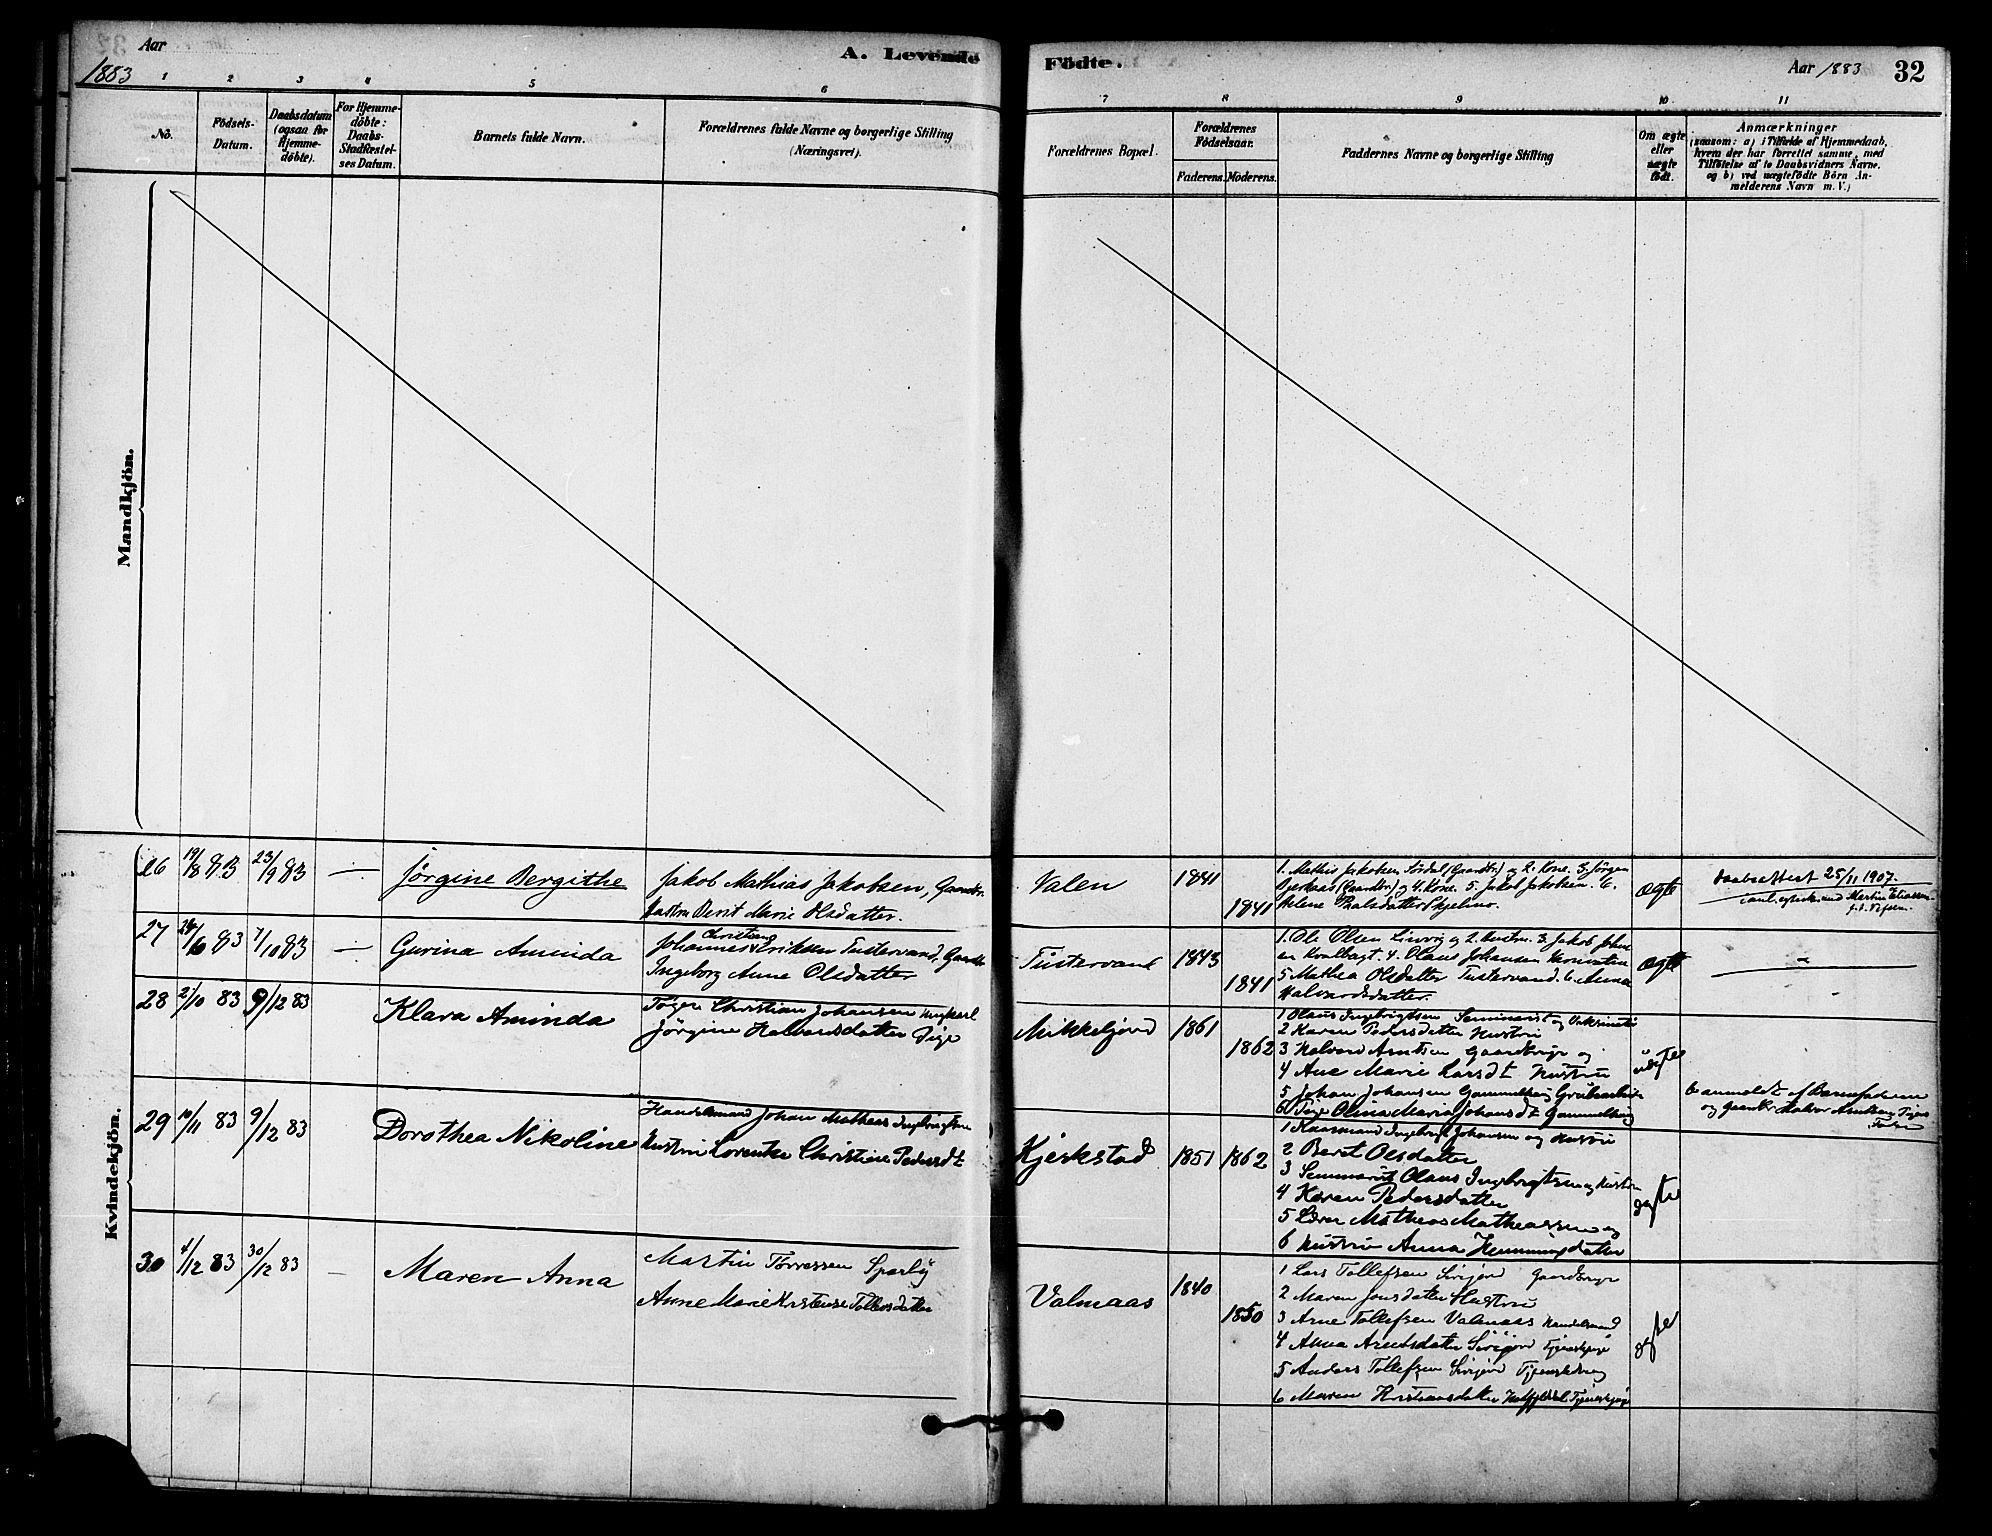 Aar
1883
A. Levende Födte.
Aar 1883
32
1 2 3 4 5 6 7 8 9 10 11
No.
Födsels-
Datum.
Daabsdatum
(ogsaa for
Hjemme-
döbte).
For Hjemme-
döbte:
Daabs-
Stadfæstel-
ses Datum.
Barnets fulde Navn.
Forældrenes fulde Navne og borgerlige Stilling
(Næringsvei).
Forældrenes Bopæl.
Forældrenes
Födselsaar.
Faderens. Moderens.
Faddernes Navne og borgerlige Stilling
Om ægte
eller
uægte
födt.
Anmærkninger
(saasom: a) i Tilfælde af Hjemmedaab,
hvem der har forrettet samme, med
Tilföielse af to Daabsvidners Navne.
og b) ved uægtefödte Börn An-
melderens Navn m. V.)
Mandkjön.
Kvindekjön.
26 19/8 83 23/9 83 Jørgine Bergithe
Jakob Mathias Jakobsen, Gaardbr.
Hustru Berit Marie Olsdatter.
Valen 1841 1841
1. Mathis Jakobsen (Gaardbr) og 2. Kone. 3. Jørgen
(Gaardbr) og 4. Kone. 5. Jakob Jakobsen. 6.
Helene
ægte
Daabsattest 25/11 1907.
Martin Eliassen
27 83 7/10 83 Gurina Aminda
Johannes Christian Eriksen Tustervand, Gaardbr
Ingeborg Anne Olsdatter
Tustervand 1843 1841
1. Ole Olsen og 2. Hustru. 3. Jakob Johan
4. Olaus Johansen
5. Mathea Olsdatter Tustervand. 6. Anna
Halvardsdatter.
ægte
28 2/10 83 9/12 83 Klara Aminda
Tøger Christian Johansen Ungkarl
Jørgine Halvardsdatter Pige
Mikkeljord 1861 1862
1 Olaus Ingebrigtsen Seminarist og
2 Karen Pedersdatter Hustru
3 Halvard Arntsen Gaardbruger og
4 Ane Marie Larsdt Hustru
5 Johan Johansen Grubearbeider
6 Pige Olina Maria Johansdt
uægte
anmeldt af Barnefaderen
og Gaardbr Halvor Arntsen Pigens
Fader
29 10/11 83 9/12 83 Dorothea Nikoline
Handelsmand Johan Matheas Ingebrigtsen
Hustru Lorentze Christine Pedersdt
Kjerkstad 1851 1862
1 Ingebrigt Johansen og Hustru
2 Beret Olsdatter
3 Seminarist Olaus Ingebrigtsen og Hustru
4 Karen Pedersdatter
5 Lærer Matheas Matheassen og
6 Hustru Anna Hemmingsdatter
ægte
30 4/12 83 30/12 83 Maren Anna
Martin Torressen
Anne Marie Kristense Tollevsdatter
Valmaas 1840 1850
1 Lars Tollefsen Gaardbruger
2 Maren Jonsdatter Hustru
3 Arne Tollefsen Valmaas Handelsmand
4 Anna Arntsdatter Tjenestepige
5 Anders Tollefsen Tjenestedreng
6 Maren Kristiansdatter Tjenestepige
ægte